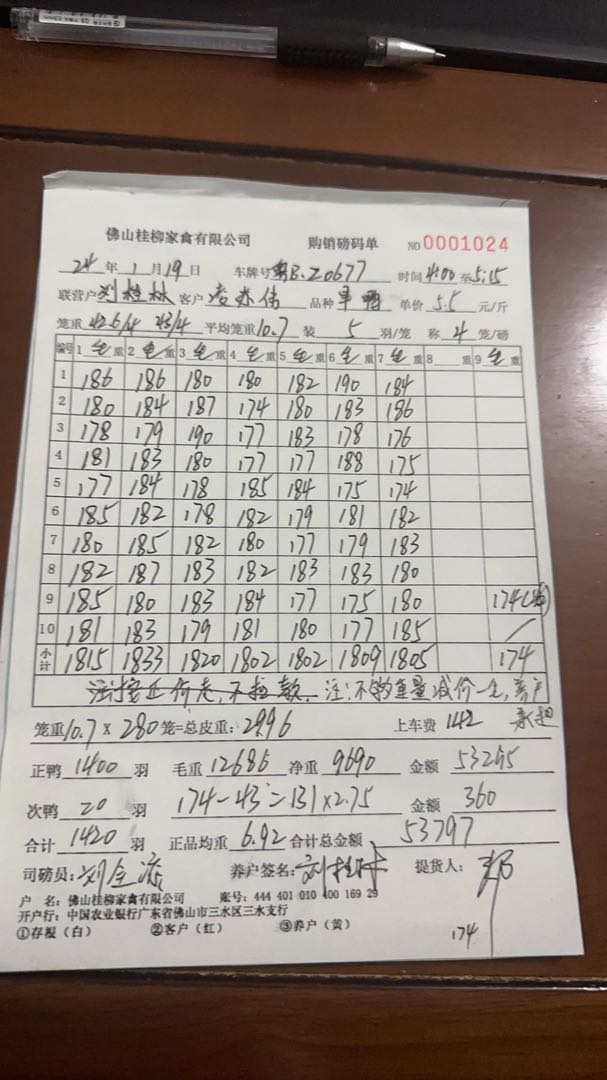 佛山桂柳家禽有限公司 购销磅码单 NO 0001024
24 年 1 月 19 日 车牌号 粤B.Z0677 时间 4:00 至 5:15
联营户 刘桂林 客户 品种 旱鸭 单价 5.5 元/斤
笼重 42.6/4 43/4 平均笼重 10.7 装 5 羽/笼 称 4 笼/磅
编号 1 毛 重 2 毛 重 3 毛 重 4 毛 重 5 毛 重 6 毛 重 7 毛 重 8 重 9 毛 重
1 186 186 180 180 182 190 184
2 180 184 187 174 180 183 186
3 178 179 190 177 183 178 176
4 181 183 180 177 177 188 175
5 177 184 178 185 184 175 174
6 185 182 178 182 179 181 182
7 180 185 182 180 177 179 183
8 182 187 183 182 183 183 180
9 185 180 183 184 177 175 180 174
10 181 183 179 181 180 177 185 /
小计 1815 1833 1820 1802 1802 1809 1805 174
注: 不 重量减价一毛,
笼重 10.7 X 280 笼=总皮重: 2996 上车费 142
正鸭 1400 羽 毛重 12686 净重 9690 金额 53295
次鸭 20 羽 174-43=131×2.75 金额 360
合计 1420 羽 正品均重 6.92 合计总金额 53797
司磅员: 养户签名: 刘桂林 提货人:
户 名: 佛山桂柳家禽有限公司 账号: 444 401 010 400 169 29
开户行: 中国农业银行广东省佛山市三水区三水支行
①存根(白) ②客户(红) ③养户(黄)
174